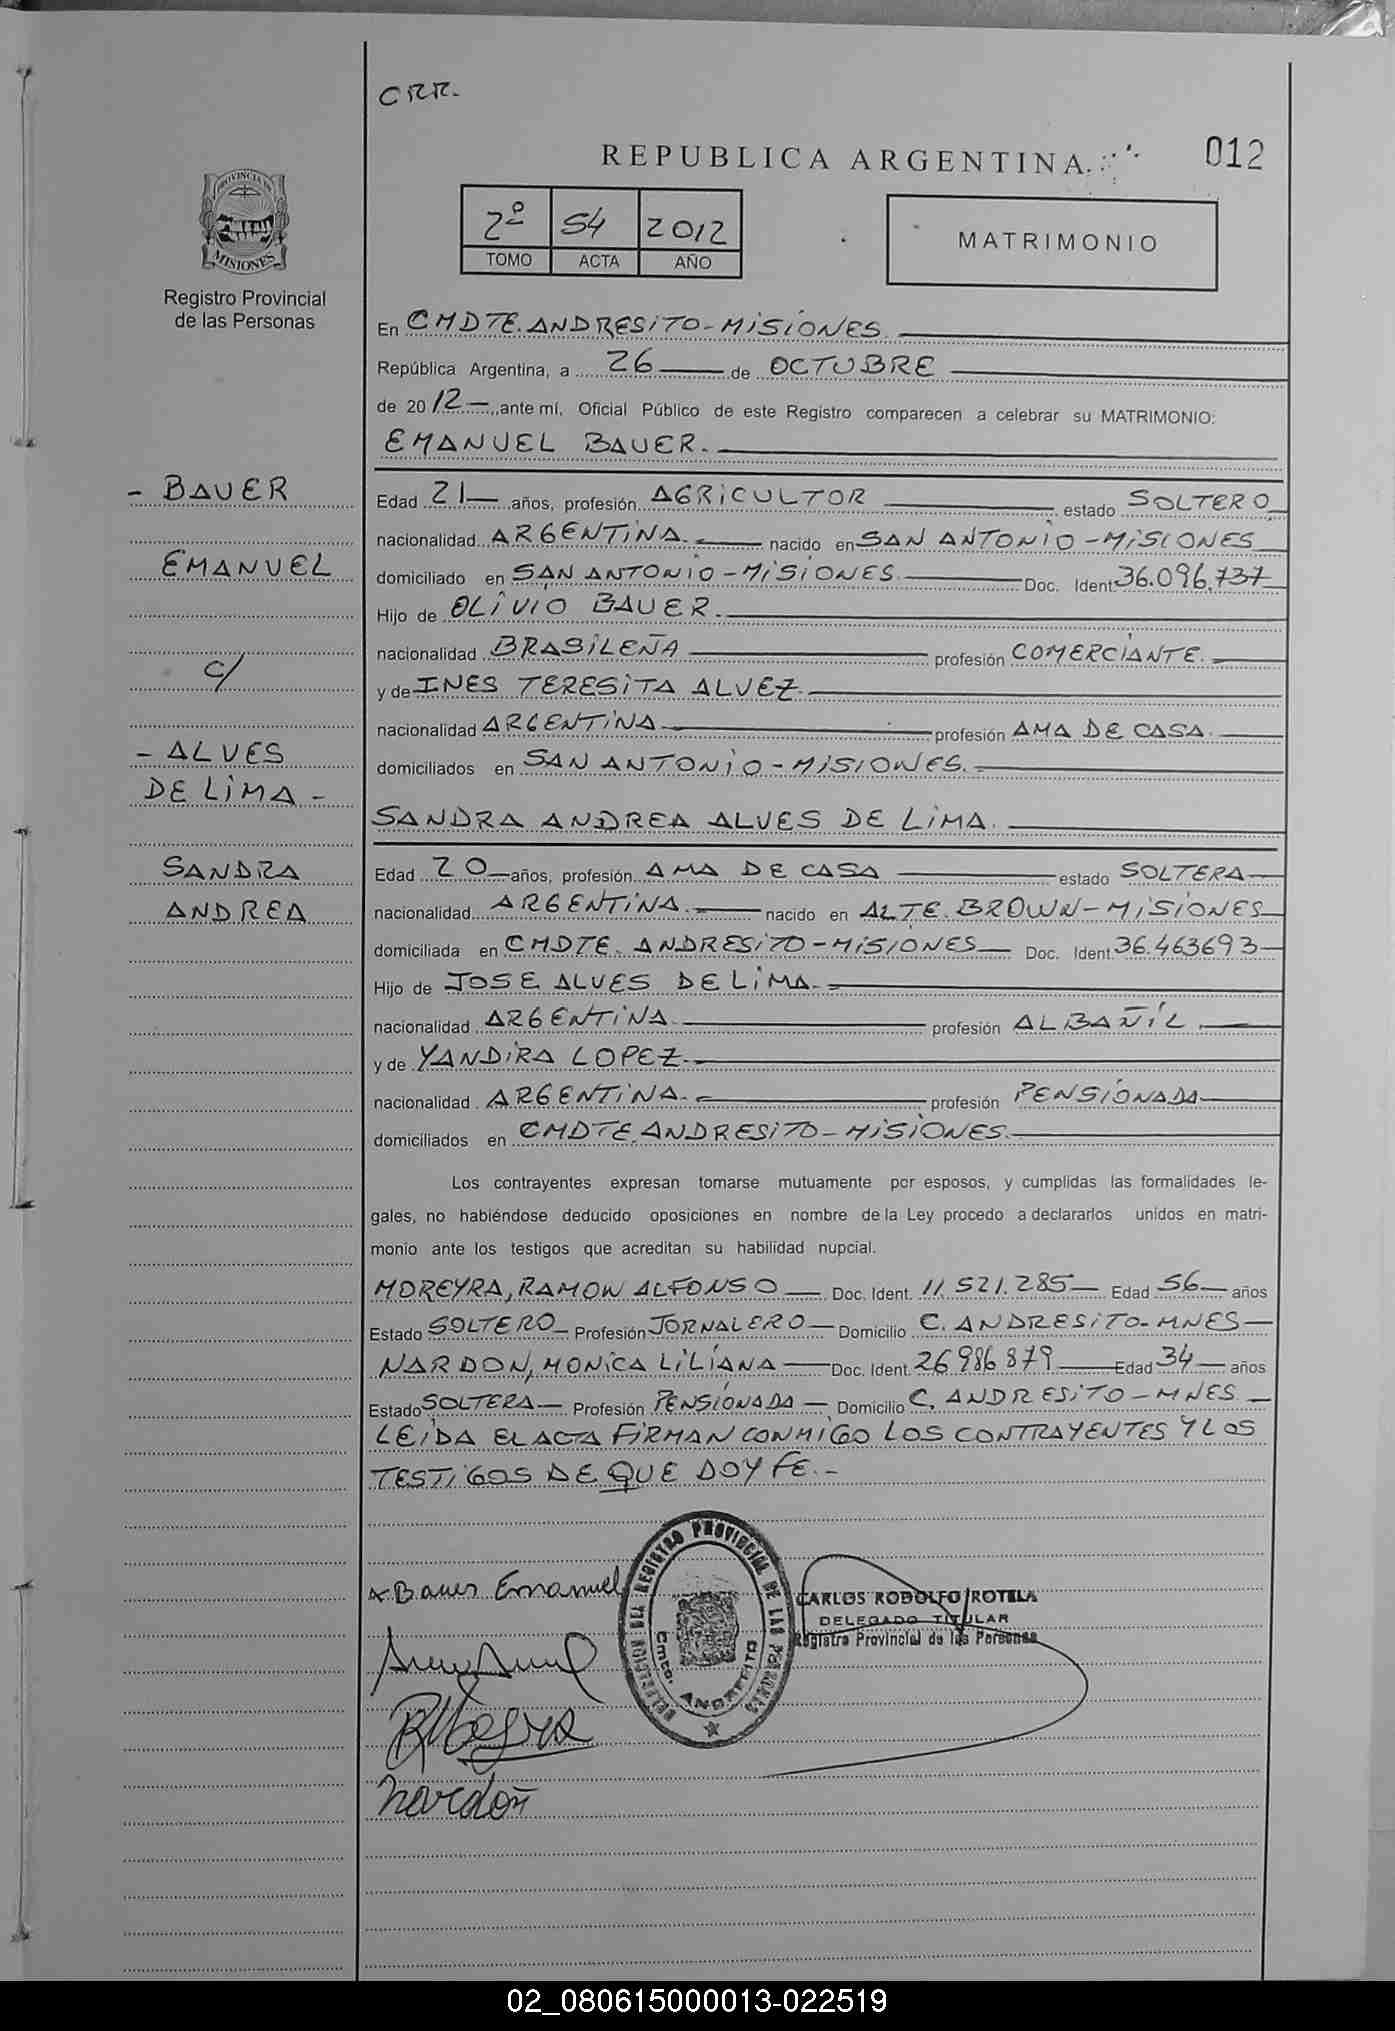 CRR.
REPUBLICA ARGENTINA
012
PROVINCIA DE
MISIONES
Registro Provincial
de las Personas
2º 54 2012
TOMO ACTA AÑO
MATRIMONIO
En CMDTE. ANDRESITO - MISIONES.
República Argentina, a 26 de OCTUBRE
de 2012 - ante mí, Oficial Público de este Registro comparecen a celebrar su MATRIMONIO:
EMANUEL BAUER.
- BAUER
EMANUEL
c/
- ALVES
DE LIMA -
SANDRA
ANDREA
Edad 21 años, profesión AGRICULTOR estado SOLTERO
nacionalidad ARGENTINA. nacido en SAN ANTONIO - MISIONES
domiciliado en SAN ANTONIO - MISIONES. Doc. Ident. 36.096.737
Hijo de OLIVIO BAUER.
nacionalidad BRASILEÑA profesión COMERCIANTE.
y de INES TERESITA ALVEZ.
nacionalidad ARGENTINA profesión AMA DE CASA.
domiciliados en SAN ANTONIO - MISIONES.
SANDRA ANDREA ALVES DE LIMA.
Edad 20 años, profesión AMA DE CASA estado SOLTERA
nacionalidad ARGENTINA. nacido en ALTE. BROWN - MISIONES
domiciliada en CMDTE. ANDRESITO - MISIONES Doc. Ident. 36.463693
Hijo de JOSE ALVES DE LIMA.
nacionalidad ARGENTINA. profesión ALBAÑIL.
y de YANDIRA LOPEZ.
nacionalidad ARGENTINA. profesión PENSIONADA
domiciliados en CMDTE. ANDRESITO - MISIONES.
Los contrayentes expresan tomarse mutuamente por esposos, y cumplidas las formalidades le-
gales, no habiéndose deducido oposiciones en nombre de la Ley procedo a declararlos unidos en matri-
monio ante los testigos que acreditan su habilidad nupcial.
MOREYRA, RAMON ALFONSO Doc. Ident. 11.521.285 Edad 56 años
Estado SOLTERO Profesión JORNALERO Domicilio C. ANDRESITO - MNES
NARDON, MONICA LILIANA Doc. Ident. 26986879 Edad 34 años
Estado SOLTERA Profesión PENSIONADA Domicilio C. ANDRESITO - MNES
LEIDA EL ACTA FIRMAN CONMIGO LOS CONTRAYENTES Y LOS
TESTIGOS DE QUE DOY FE.-
x Bauer Emanuel
DELEGACION DEL REGISTRO PROVINCIAL DE LAS PERSONAS
Cmte. ANDRESITO
CARLOS RODOLFO ROTELA
DELEGADO TITULAR
Registro Provincial de las Personas
Nardon
02_080615000013-022519